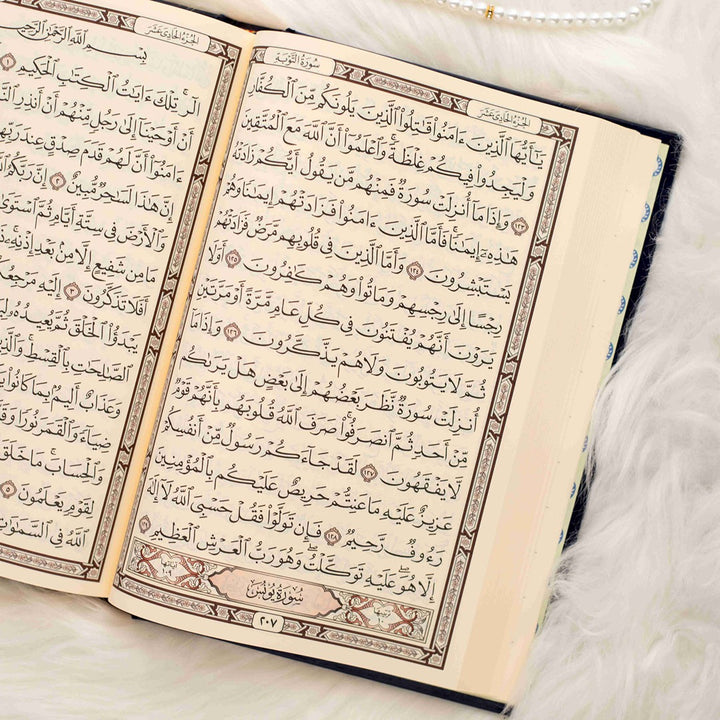 الجُزْءُ الحَادِي عَشَرَ
سُورَةُ التَّوْبَةِ
يَٰٓأَيُّهَا ٱلَّذِينَ ءَامَنُوا۟ قَٰتِلُوا۟ ٱلَّذِينَ يَلُونَكُم مِّنَ ٱلْكُفَّارِ
وَلْيَجِدُوا۟ فِيكُمْ غِلْظَةً ۚ وَٱعْلَمُوٓا۟ أَنَّ ٱللَّهَ مَعَ ٱلْمُتَّقِينَ
١٢٣ وَإِذَا مَآ أُنزِلَتْ سُورَةٌ فَمِنْهُم مَّن يَقُولُ أَيُّكُمْ زَادَتْهُ
هَٰذِهِۦٓ إِيمَٰنًا ۚ فَأَمَّا ٱلَّذِينَ ءَامَنُوا۟ فَزَادَتْهُمْ إِيمَٰنًا وَهُمْ
يَسْتَبْشِرُونَ ١٢٤ وَأَمَّا ٱلَّذِينَ فِى قُلُوبِهِم مَّرَضٌ فَزَادَتْهُمْ
رِجْسًا إِلَىٰ رِجْسِهِمْ وَمَاتُوا۟ وَهُمْ كَٰفِرُونَ ١٢٥ أَوَلَا
يَرَوْنَ أَنَّهُمْ يُفْتَنُونَ فِى كُلِّ عَامٍ مَّرَّةً أَوْ مَرَّتَيْنِ
ثُمَّ لَا يَتُوبُونَ وَلَا هُمْ يَذَّكَّرُونَ ١٢٦ وَإِذَا مَآ
أُنزِلَتْ سُورَةٌ نَّظَرَ بَعْضُهُمْ إِلَىٰ بَعْضٍ هَلْ يَرَىٰكُم
مِّنْ أَحَدٍ ثُمَّ ٱنصَرَفُوا۟ ۚ صَرَفَ ٱللَّهُ قُلُوبَهُم بِأَنَّهُمْ قَوْمٌ
لَّا يَفْقَهُونَ ١٢٧ لَقَدْ جَآءَكُمْ رَسُولٌ مِّنْ أَنفُسِكُمْ
عَزِيزٌ عَلَيْهِ مَا عَنِتُّمْ حَرِيصٌ عَلَيْكُم بِٱلْمُؤْمِنِينَ
رَءُوفٌ رَّحِيمٌ ١٢٨ فَإِن تَوَلَّوْا۟ فَقُلْ حَسْبِىَ ٱللَّهُ لَآ إِلَٰهَ
إِلَّا هُوَ ۖ عَلَيْهِ تَوَكَّلْتُ ۖ وَهُوَ رَبُّ ٱلْعَرْشِ ٱلْعَظِيمِ ١٢٩
تَرْتِيبُهَا ١٠ سُورَةُ يُونُسَ آيَاتُهَا ١٠٩
٢٠٧
الجُزْءُ الحَادِي عَشَرَ
بِسْمِ ٱللَّهِ ٱلرَّحْمَٰنِ ٱلرَّحِيمِ
الٓر ۚ تِلْكَ ءَايَٰتُ ٱلْكِتَٰبِ ٱلْحَكِيمِ ١
أَنْ أَوْحَيْنَآ إِلَىٰ رَجُلٍ مِّنْهُمْ أَنْ أَنذِرِ
ءَامَنُوٓا۟ أَنَّ لَهُمْ قَدَمَ صِدْقٍ عِندَ رَبِّهِمْ
إِنَّ هَٰذَا لَسَٰحِرٌ مُّبِينٌ ٢ إِنَّ رَبَّكُمُ
وَٱلْأَرْضَ فِى سِتَّةِ أَيَّامٍ ثُمَّ ٱسْتَوَىٰ
مَا مِن شَفِيعٍ إِلَّا مِنۢ بَعْدِ إِذْنِهِۦ ۚ
أَفَلَا تَذَكَّرُونَ ٣ إِلَيْهِ مَرْجِعُكُمْ
يَبْدَؤُا۟ ٱلْخَلْقَ ثُمَّ يُعِيدُهُۥ
ٱلصَّٰلِحَٰتِ بِٱلْقِسْطِ ۚ
وَعَذَابٌ أَلِيمٌۢ بِمَا كَانُوا۟
ضِيَآءً وَٱلْقَمَرَ نُورًا
وَٱلْحِسَابَ ۚ مَا خَلَقَ
لِقَوْمٍ يَعْلَمُونَ ٥
ٱللَّهُ فِى ٱلسَّمَٰوَٰتِ